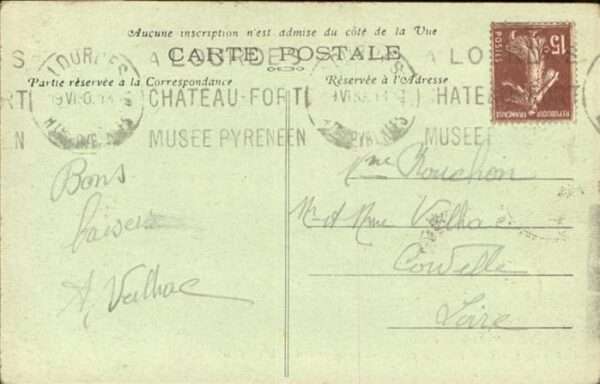 Aucune inscription n'est admise du côté de la Vue
CARTE POSTALE
Partie réservée à la Correspondance
Réservée à l'Adresse
A LOURDES
CHATEAU-FORT
MUSEE PYRENEEN
LOURDES
A LOURDES
CHATEAU
MUSEE
15c
POSTES
REPUBLIQUE FRANÇAISE
Bons
baisers
A. Valhac
Mme Rouchon
Mr & Mme Valhac
Cordelle
Loire